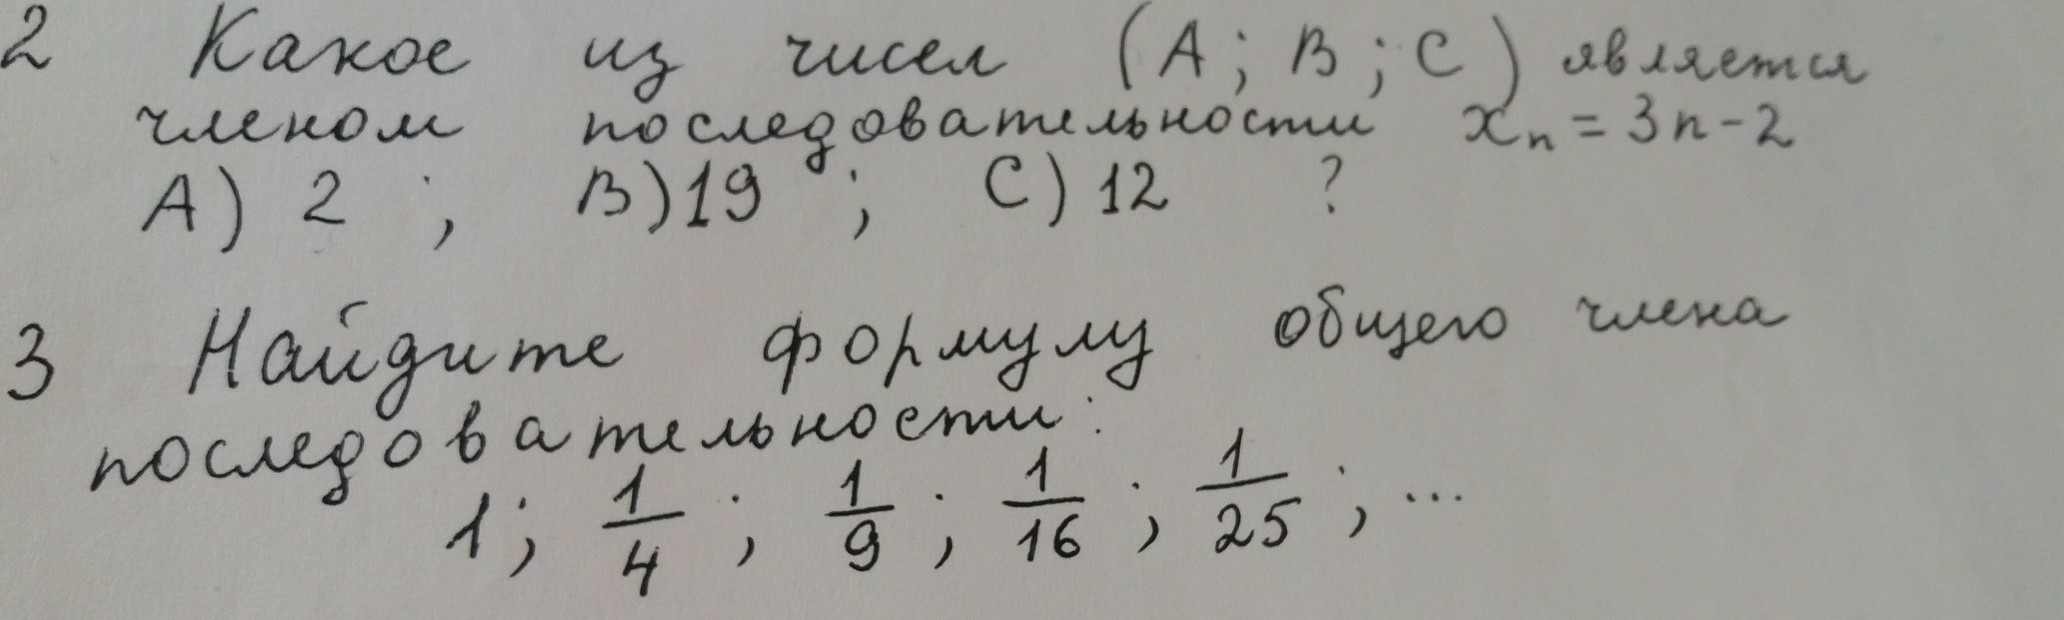 2 Какое из чисел (A; B; C) является
членом последовательности xₙ = 3n - 2
A) 2 ; B) 19 ; C) 12 ?
3 Найдите формулу общего члена
последовательности:
1; 1/4 ; 1/9 ; 1/16 ; 1/25 ; ...